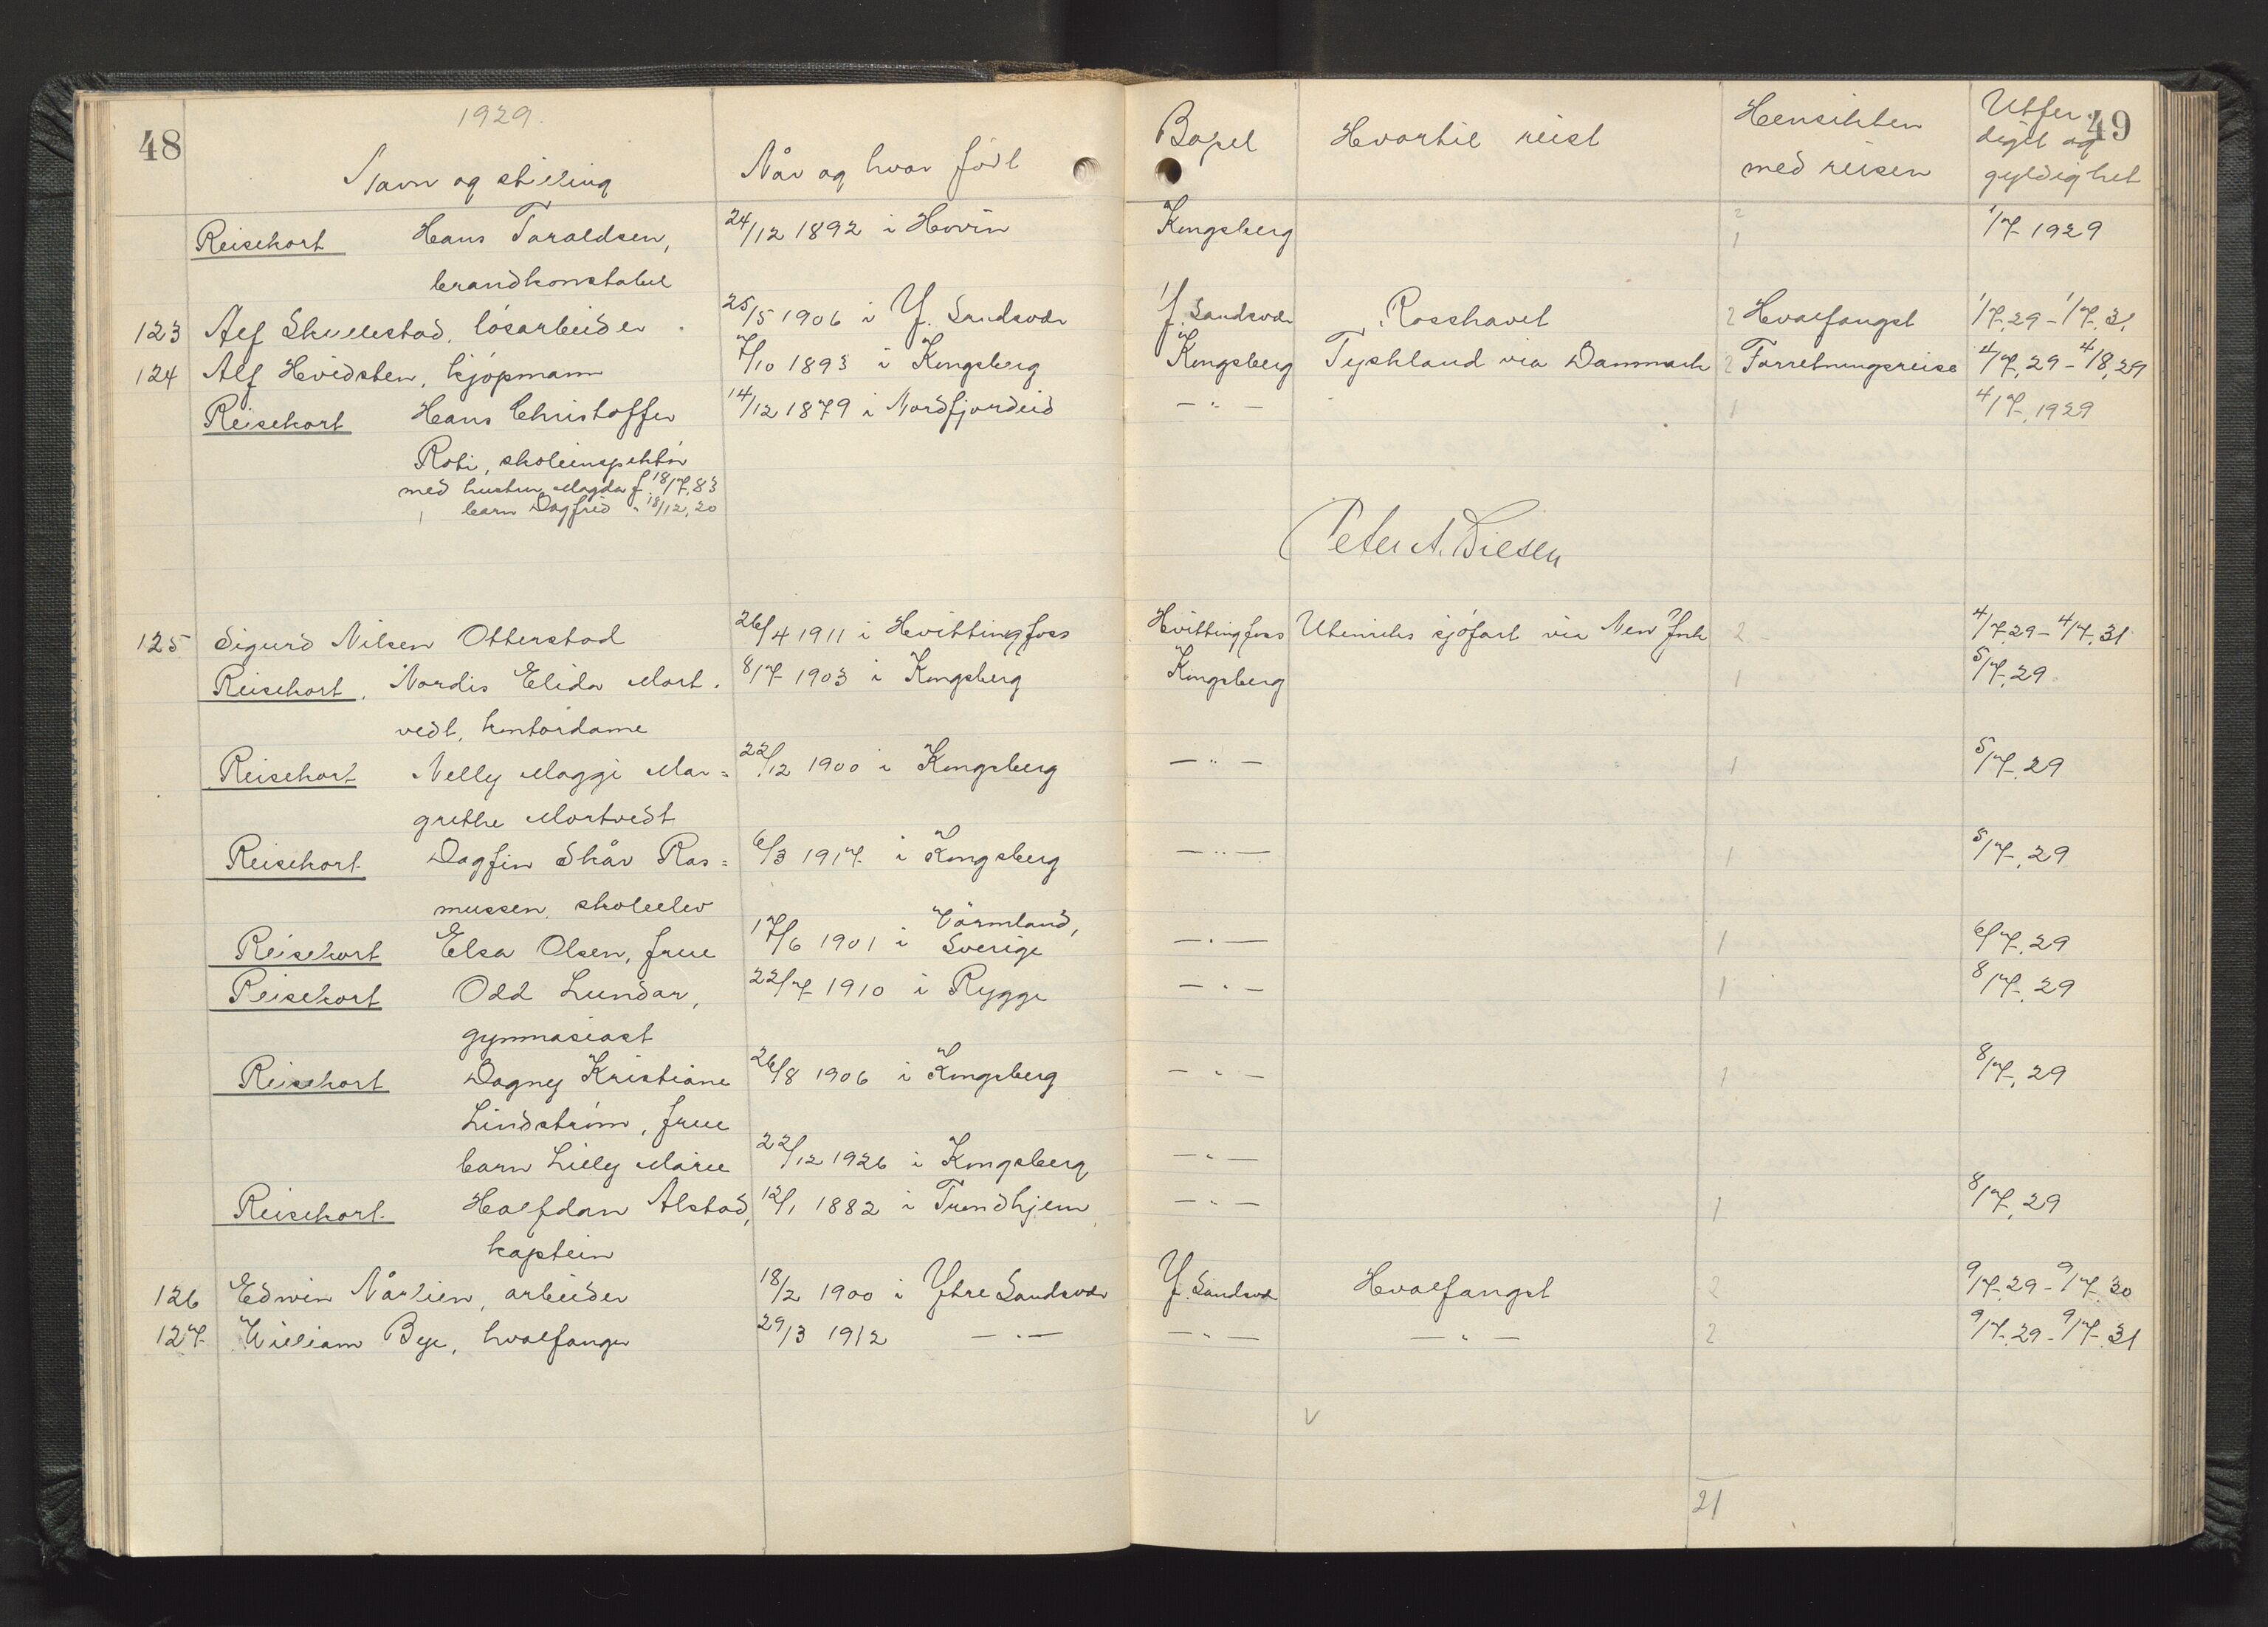 48
1929.
Navn og stilling
Når og hvor født
Bopel
Hvortil reist
Hensikten
med reisen
Utfer-
diget og
gyldighet
49
Reisekort Hans Taraldsen, 24/12 1892 i Hovin Kongsberg 2 1 1/7 1929
brandkonstabel
123 Alf Skullestad, løsarbeider. 25/5 1906 i Y. Sandsvær Y. Sandsvær Rosshavet 2 Hvalfangst 1/7.29 - 1/7.31
124 Alf Hvidsten, kjøpmann 7/10 1893 i Kongsberg Kongsberg Tyskland via Danmark 2 Forretningsreise 4/7.29 - 4/8.29
Reisekort Hans Christoffer 14/12 1879 i Nordfjordeid — " — 1 4/7.1929
Roti, skoleinspektør
med hustru Magda f. 18/7.83
1 barn Dagfrid " 18/12.20
Peter A. Diesen
125 Sigurd Nilsen Otterstad 26/4 1911 i Hvittingfoss Hvittingfoss Utenriks sjøfart via New York 2 4/7.29 - 4/7.31
Reisekort. Nordis Elida Mort- 8/7 1903 i Kongsberg Kongsberg 1 5/7.29
vedt, kontordame
Reisekort Nelly Maggi Mar= 22/12 1900 i Kongsberg — " — 1 5/7.29
grethe Mortvedt
Reisekort Dagfin Skår Ras= 6/3 1917 i Kongsberg — " — 1 5/7.29
mussen, skoleelev
Reisekort Elsa Olsen, frue 17/6 1901 i Värmland, Sverige — " — 1 6/7.29
Reisekort Odd Lundar, 22/7 1910 i Rygge — " — 1 8/7.29
gymnasiast
Reisekort Dagny Kristiane 26/8 1906 i Kongsberg — " — 1 8/7.29
Lindstrøm, frue
barn Lilly Marie 22/12 1926 i Kongsberg — " —
Reisekort Halfdan Alstad, 12/1 1882 i Trondhjem — " — 1 8/7.29
kaptein
126 Edwin Nårlien, arbeider 18/2 1900 i Ytre Sandsvær Y. Sandsvær Hvalfangst 2 9/7.29 - 9/7.30
127 William Bye, hvalfanger 29/3 1912 — " — — " — — " — 2 9/7.29 - 9/7.31
V
21